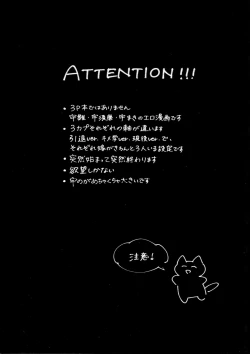 ATTENTION!!!
• 3P本ではありません
宇雛・宇須磨・宇まきのエロ漫画です
• 3カプそれぞれの軸が違います
引退ver. キメ学ver. 現役ver.で、
それぞれ嫁がきちんと3人いる設定です
• 突然始まって突然終わります
• 欲望しかない
• 宇のがめちゃくちゃ大きいです
注意!